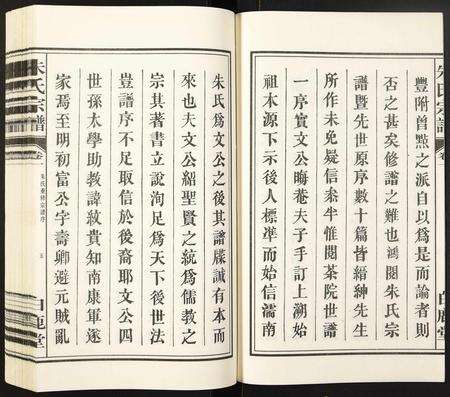 豐附曾㸃之派自以爲是而論者則
否之甚矣修譜之難也鴻閱朱氏宗
譜暨先世原序數十篇皆縉紳先生
所作未免疑信叅半惟閱茶院世譜
一序實文公晦菴夫子手訂上溯始
祖木源下示後人標準而始信濡南
朱氏宗譜
卷
白鹿堂
朱氏爲文公之後其譜牒誠有本而
來也夫文公紹聖賢之統爲儒教之
宗其著書立說洵足爲天下後世法
豈譜序不足取信於後裔耶文公四
世孫太學助教諱紋貴知南康軍遂
家焉至明初富公字壽卿避元賊亂
朱氏宗譜
卷一
朱氏重修宗譜序
五
白鹿堂